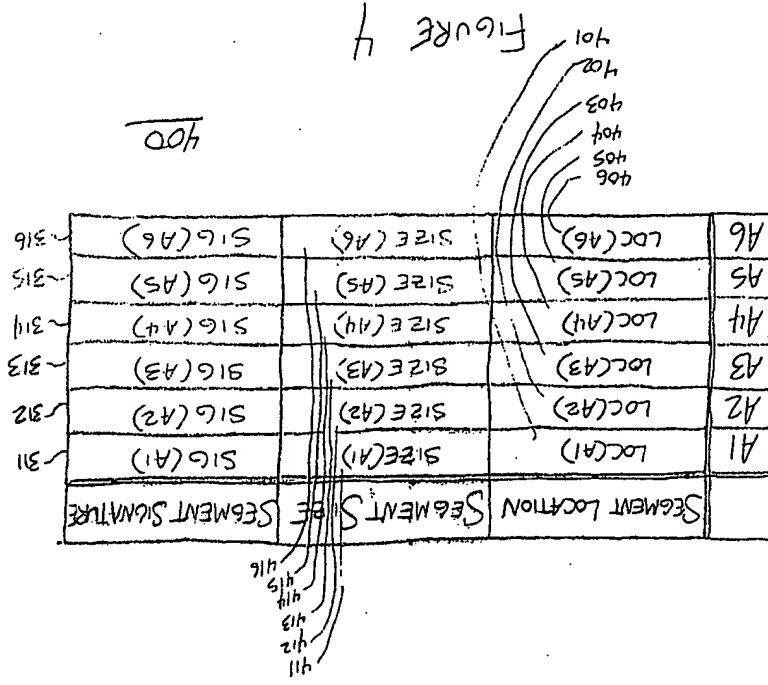 411
412
413
414
415
416
SEGMENT LOCATION SEGMENT SIZE SEGMENT SIGNATURE
A1 LOC(A1) SIZE(A1) SIG(A1) 311
A2 LOC(A2) SIZE(A2) SIG(A2) 312
A3 LOC(A3) SIZE(A3) SIG(A3) 313
A4 LOC(A4) SIZE(A4) SIG(A4) 314
A5 LOC(A5) SIZE(A5) SIG(A5) 315
A6 LOC(A6) SIZE(A6) SIG(A6) 316
406
405
404
403
402
401
400
FIGURE 4